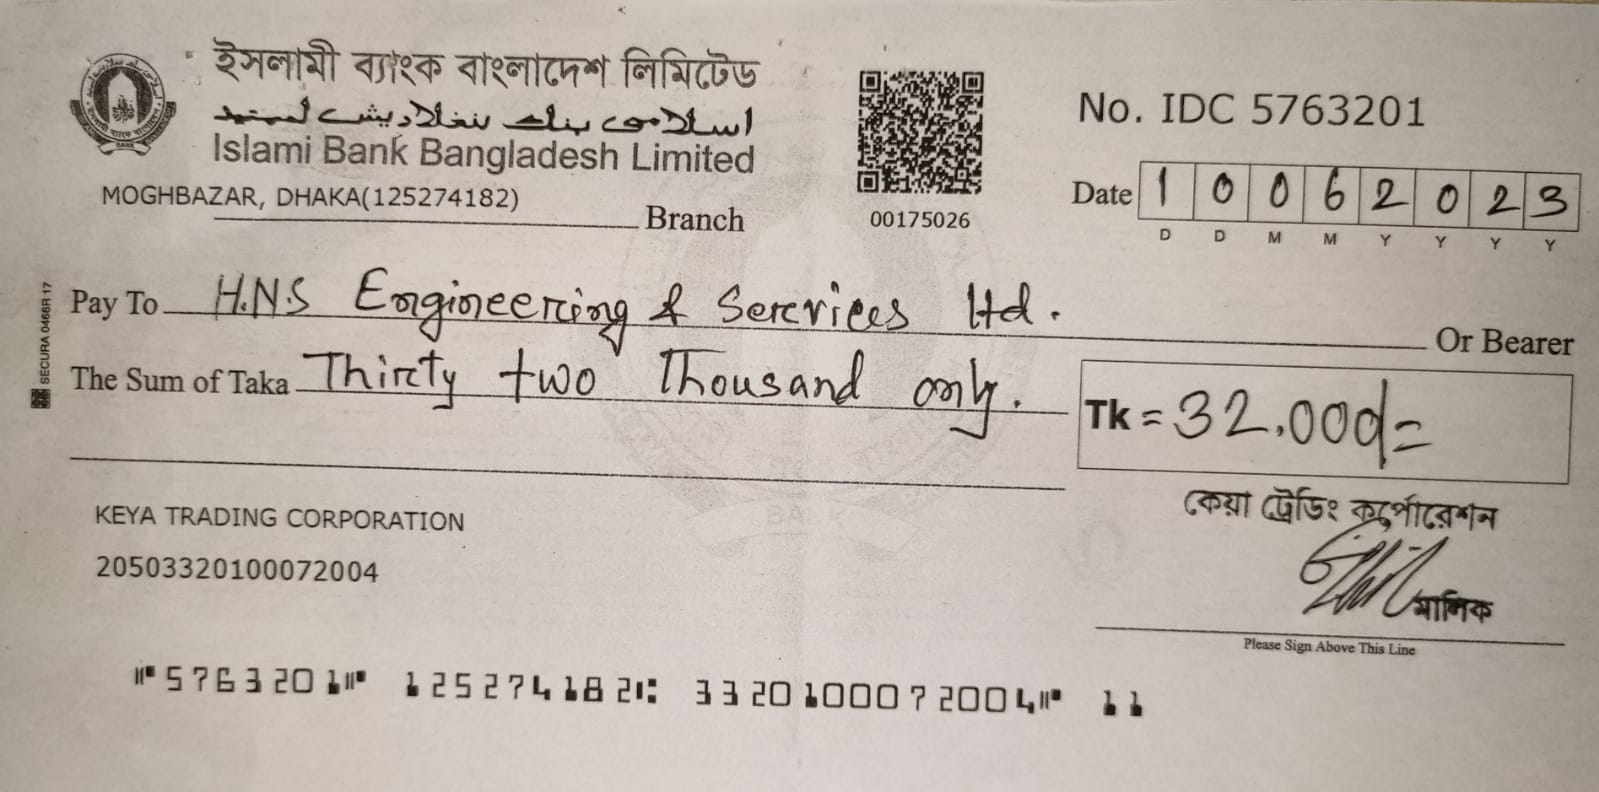 ইসলামী ব্যাংক বাংলাদেশ লিমিটেড
اسلامى بنك بنغلاديش لميتيد
Islami Bank Bangladesh Limited
MOGHBAZAR, DHAKA(125274182)
Branch
00175026
No. IDC 5763201
Date 1 0 0 6 2 0 2 3
D D M M Y Y Y Y
SECURA 0466R 17
Pay To H.N.S Engineering & Services Ltd.
Or Bearer
The Sum of Taka Thirty two Thousand only.
Tk = 32,000/=
KEYA TRADING CORPORATION
20503320100072004
কেয়া ট্রেডিং কর্পোরেশন
মালিক
Please Sign Above This Line
⑈5763201⑈ 125274182⑆ 3320100072004⑈ 11